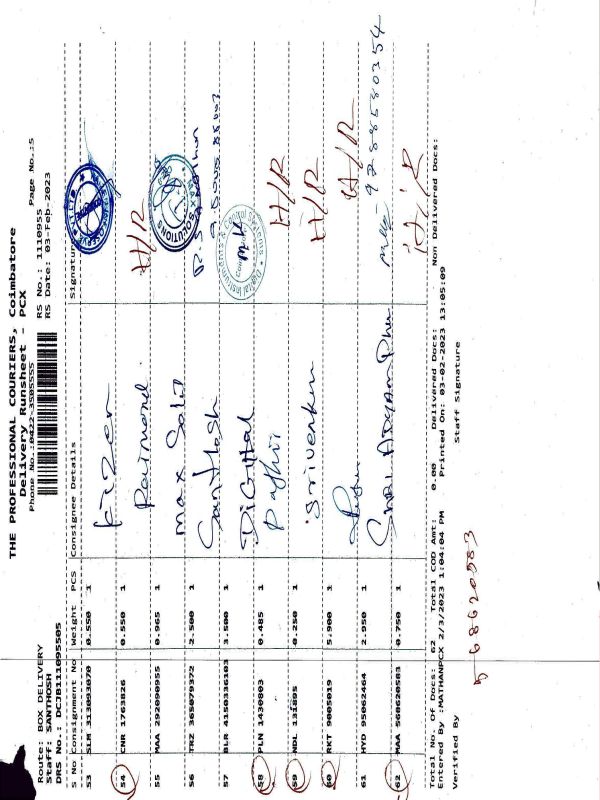 THE PROFESSIONAL COURIERS, Coimbatore
Delivery Runsheet - PCX
Phone No.:0422-3505555
Route: BOX DELIVERY
Staff: SANTHOSH
DRS No.: DCJB111095505
RS No.: 1110955 Page No.:5
RS Date: 03-Feb-2023
S No Consignment No Weight PCS Consignee Details Signature
53 SLM 313093070 0.550 1 Fizer
54 CNR 1763826 0.550 1 Raimond H/R
55 MAA 292090955 0.965 1 Max Solu MAX SOLUTIONS
56 TRZ 365079372 2.500 1 Santhosh
57 BLR 4150336103 3.500 1 DIGITAL Digital Instruments Control Systems
58 PLN 1430803 0.485 1 H/R
59 NDL 131805 0.250 1 H/R
60 RKT 9005019 5.900 1 H/R
61 HYD 95062464 2.950 1
62 MAA 568620583 0.750 1 H/R
Total No. Of Docs: 62 Total COD Amt: 0.00 Delivered Docs: Non Delivered Docs:
Entered By :MATHANPCX 2/3/2023 1:04:04 PM Printed On: 03-02-2023 13:05:09
Verified By Staff Signature
568620583